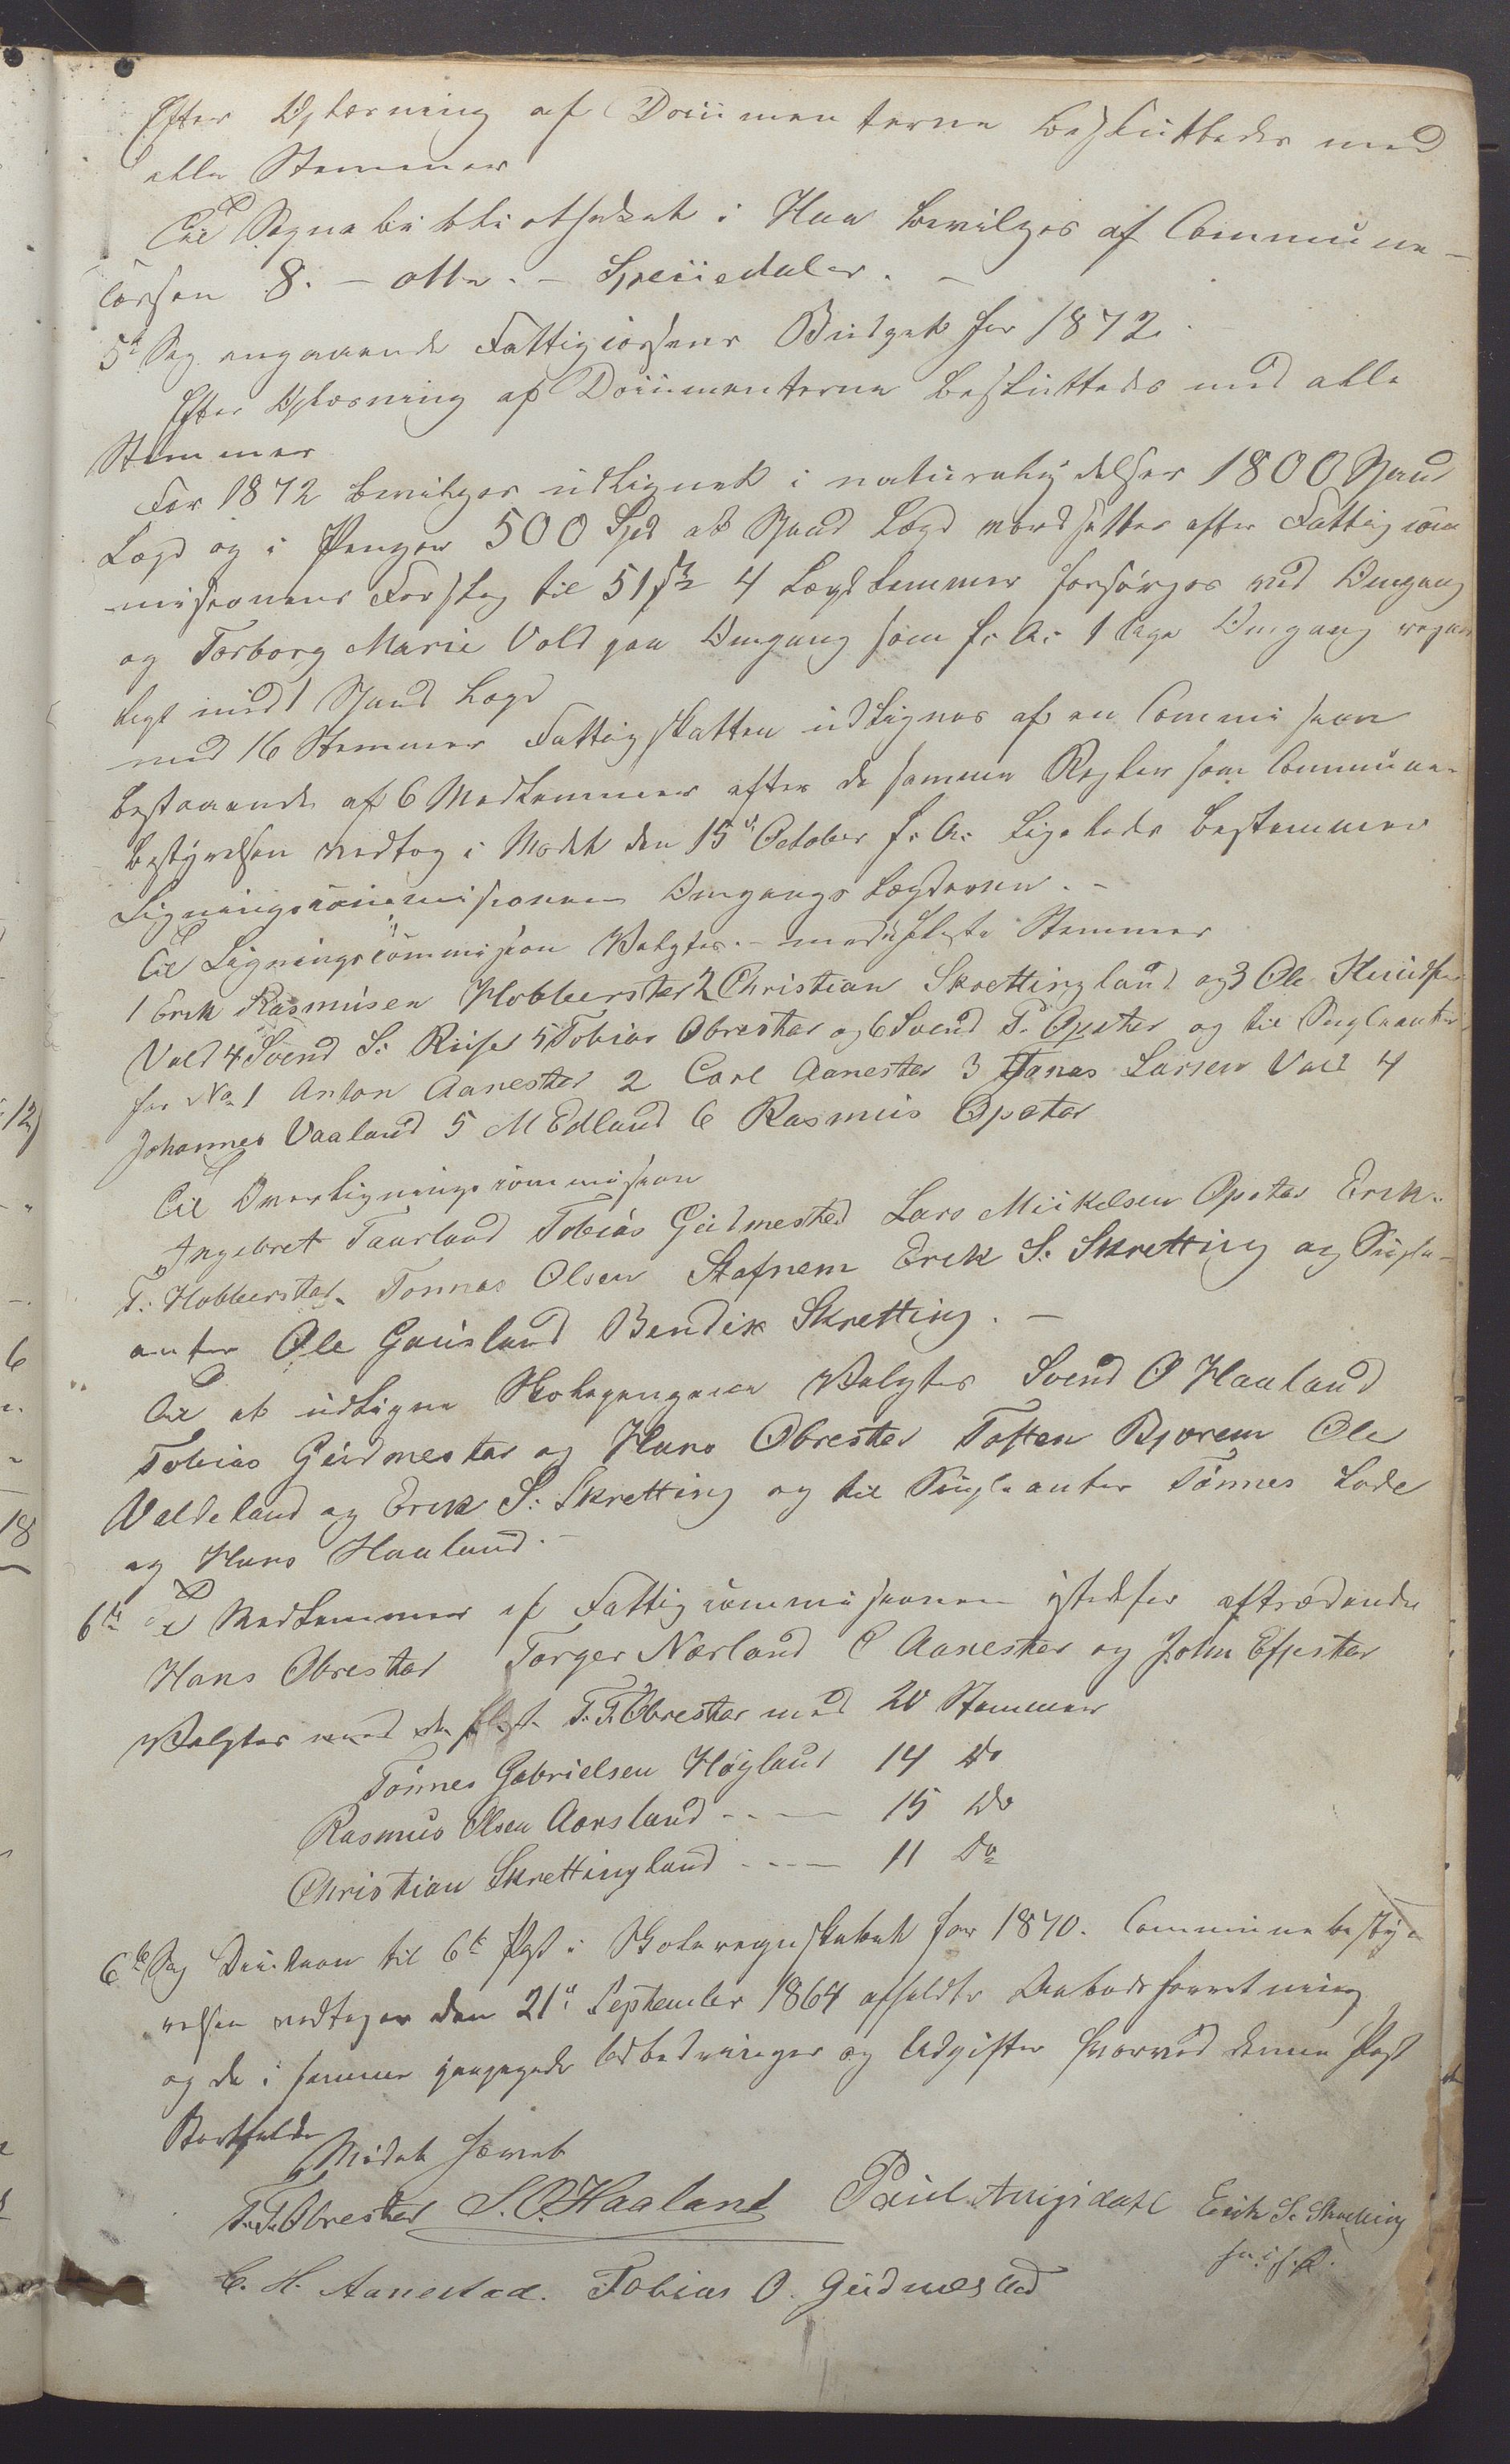 Efter Oplæsning af Documenterne besluttedes med
alle Stemmer
Til Sognebibliotheket i Haa bevilges af Commune-
cassen 8. - otte. - Speciedaler. -
5te Sag angaaende Fattigcassens Budget for 1872.
Efter Oplæsning af Documenterne besluttedes med alle
Stemmer
For 1872 bevilges udlignet i naturalydelser 1800 Spand
Lægd og i Penger 500 Spd at Spand Lægd værdsettes efter Fattigcom
missionens Forslag til 51 s 4 Lægdslemmer forsørges ved Omgang
og Torborg Marie Vold paa Omgang som f. A. 1 Uge Omgang regnes
ligt med 1 Spand Lægd
med 16 Stemmer Fattigskatten udlignes af en Commission
bestaaende af 6 Medlemmer efter de samme Regler som Commune-
bestyrelsen vedtog i Mødet den 15de October f. A. Ligeledes bestemmer
Ligningscommissionen Omgangs Lægderne. -
Til Ligningscommission Valgtes - med fleste Stemmer
1 Erik Rasmusen Hobberstad 2 Christian Skrettingland og 3 Ole Knudsen
Vold 4 Svend S. Riise 5 Tobias Obrestad og 6 Svend T. Opstad og til Supleanter
for No 1 Anton Aanestad 2 Carl Aanestad 3 Jonas Larsen Vold 4
Johannes Vaaland 5 M Edland 6 Rasmus Opstad
Til Overligningscommission
Ingebret Taarland Tobias Gudmestad Lars Mikkelsen Opstad Erik
T. Hobberstad Tonnes Olsen Stafnem Erik S. Skretting og Suple-
anter Ole Gausland Bendik Skretting. -
Til at udligne Skolepengene Valgtes Svend O Haaland
Tobias Gudmestad og Hans Obrestad Tosten Bjorem Ole
Valdeland og Erik S. Skretting og til Supleanter Tönnes Lode
og Hans Haaland. -
6te Til Medlemmer af Fattigcommissionen istedetfor aftrædende
Hans Obrestad Torger Nærland C Aanestad og John Efjestad
Valgtes med de fleste T. T. Obrestad med 20 Stemmer
Tönnes Gabrielsen Høyland 14 Do
Rasmus Olsen Aarsland - - - 15 Do
Christian Skrettingland - - - 11 Do
6te Sag Decision til 6te Post i Skoleregnskabet for 1870. Communebesty
relsen vedtager den 21de September 1864 afholdte Anbudsforretning
og de i samme paapegede Udbedringer og Udgifter hvorved denne Post
Bortfalder
Mødet hævet
T. T. Obrestad S. O. Haaland Paul Erik S. Skretting
C. H. Aanestad. Tobias O. Gudmestad